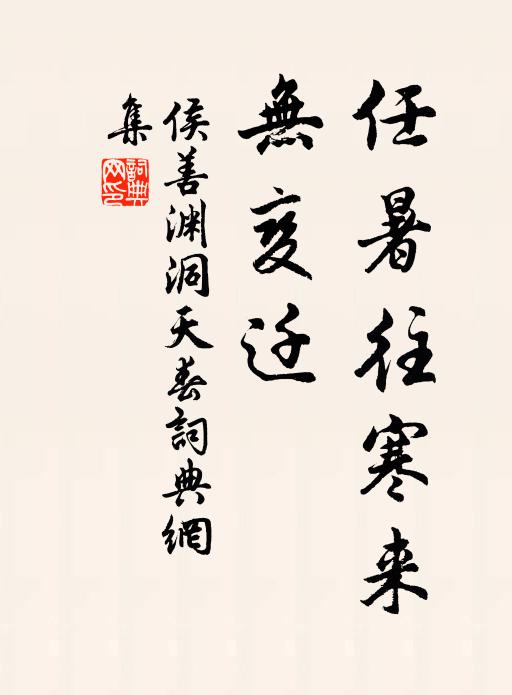 任暑往寒来
無变迁
侯善渊洞天春詞典網
集
詞典
网印